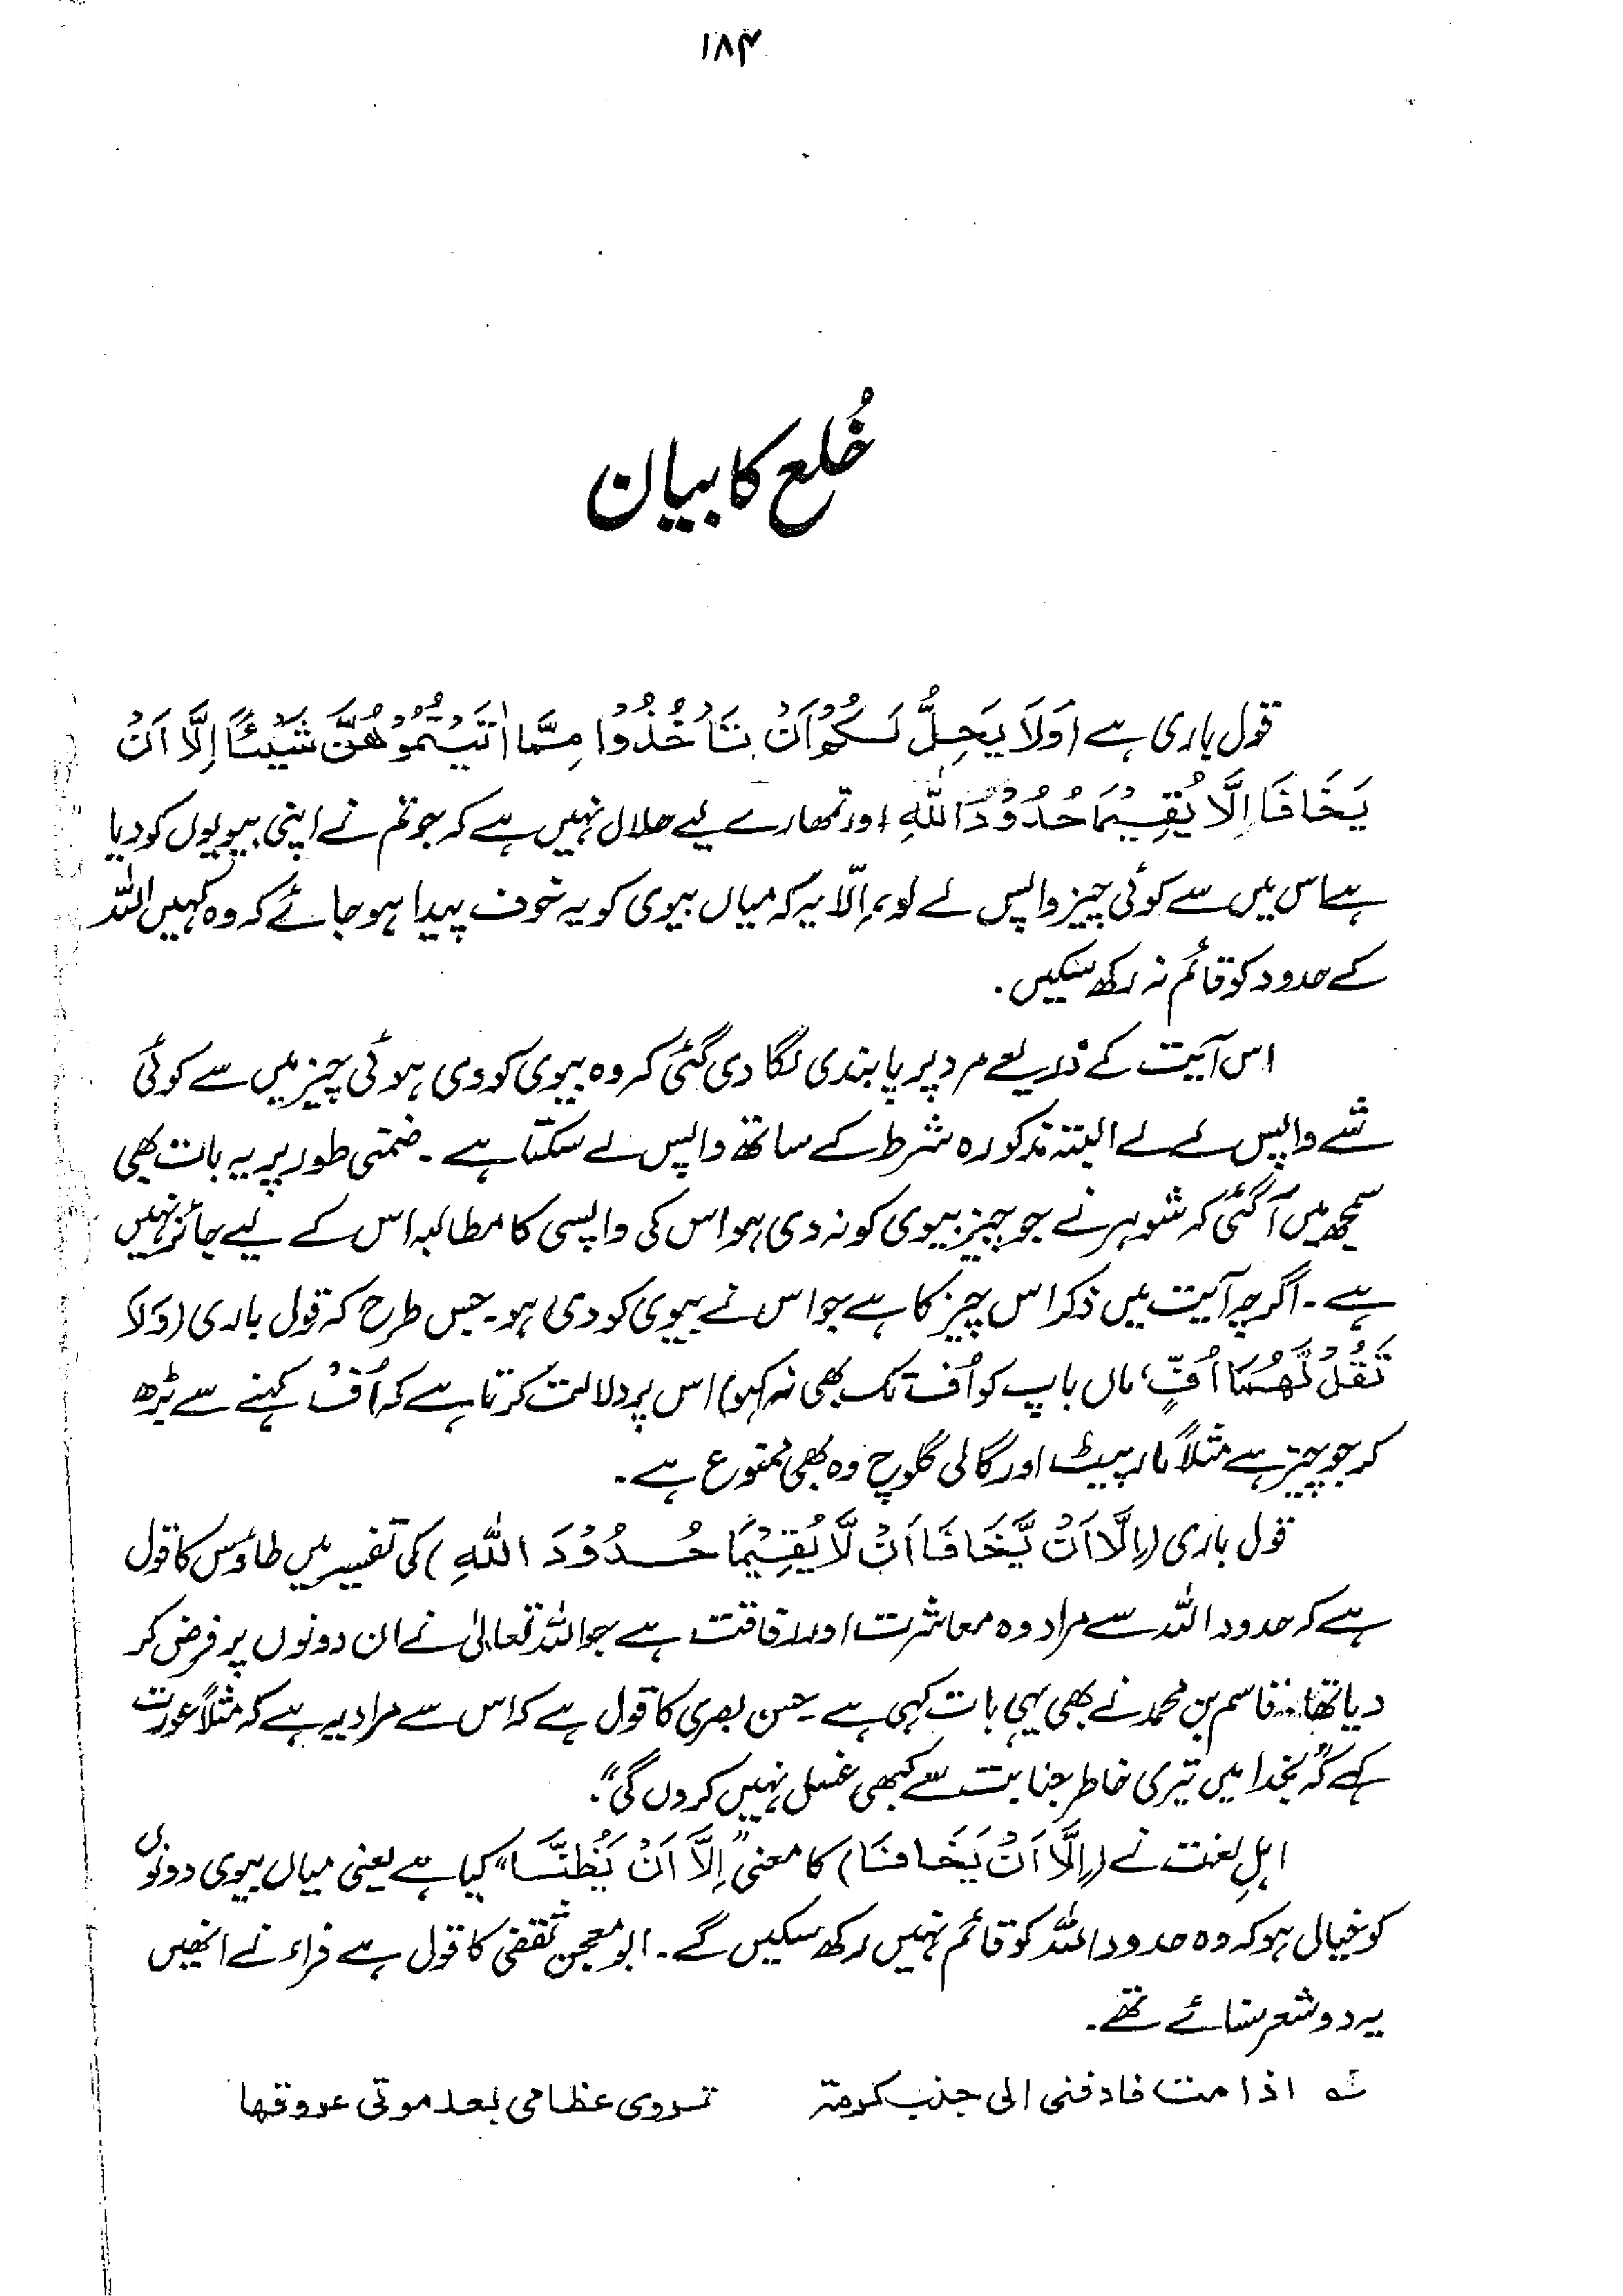 ۱۸۴
خُلع کا بیان
قول باری ہے (وَلَا يَحِلُّ لَكُمْ اَنْ تَأْخُذُوْا مِمَّا اٰتَيْتُمُوْهُنَّ شَيْئًا اِلَّا اَنْ
يَخَافَا اِلَّا يُقِيْمَا حُدُوْدَ اللّٰهِ، اور تمھارے لیے حلال نہیں ہے کہ جو تم نے اپنی بیویوں کو دیا
ہے اس میں سے کوئی چیز واپس لے لو، اِلّا یہ کہ میاں بیوی کو یہ خوف پیدا ہو جائے کہ وہ کہیں اللہ
کے حدود کو قائم نہ رکھ سکیں۔
اس آیت کے ذریعے مرد پر پابندی لگا دی گئی کہ وہ بیوی کو دی ہوئی چیز میں سے کوئی
شے واپس لے لے البتہ مذکورہ شرط کے ساتھ واپس لے سکتا ہے۔ ضمنی طور پر یہ بات بھی
سمجھ میں آگئی کہ شوہر نے جو چیز بیوی کو نہ دی ہو اس کی واپسی کا مطالبہ اس کے لیے جائز نہیں
ہے۔ اگرچہ آیت میں ذکر اس چیز کا ہے جو اس نے بیوی کو دی ہو۔ جس طرح کہ قول باری (وَلَا
تَقُلْ لَّهُمَا اُفٍّ، ماں باپ کو اُف تک بھی نہ کہو) اس پر دلالت کرتا ہے کہ اُف کہنے سے بڑھ
کر جو چیز ہے مثلاً مار پیٹ اور گالی گلوچ وہ بھی ممنوع ہے۔
قول باری (اِلَّا اَنْ يَّخَافَا اَنْ لَّا يُقِيْمَا حُدُوْدَ اللّٰهِ) کی تفسیر میں طاؤس کا قول
ہے کہ حدود اللہ سے مراد وہ معاشرت اور رفاقت ہے جو اللہ تعالیٰ نے ان دونوں پر فرض کر
دیا تھا۔ قاسم بن محمد نے بھی یہی بات کہی ہے۔ حسن بصری کا قول ہے کہ اس سے مراد یہ ہے کہ مثلاً عورت
کہے کہ "بخدا میں تیری خاطر جنابت سے کبھی غسل نہیں کروں گی"۔
اہلِ لغت نے (اِلَّا اَنْ يَخَافَا) کا معنی "اِلَّا اَنْ يَظُنَّا" کیا ہے یعنی میاں بیوی دونوں
کو خیال ہو کہ وہ حدود اللہ کو قائم نہیں رکھ سکیں گے۔ ابو محجن ثقفی کا قول ہے فراء نے انھیں
یہ دو شعر سنائے تھے۔
؎ اذا مت فادفنی الی جنب کرمۃ تروی عظامی بعد موتی عروقها